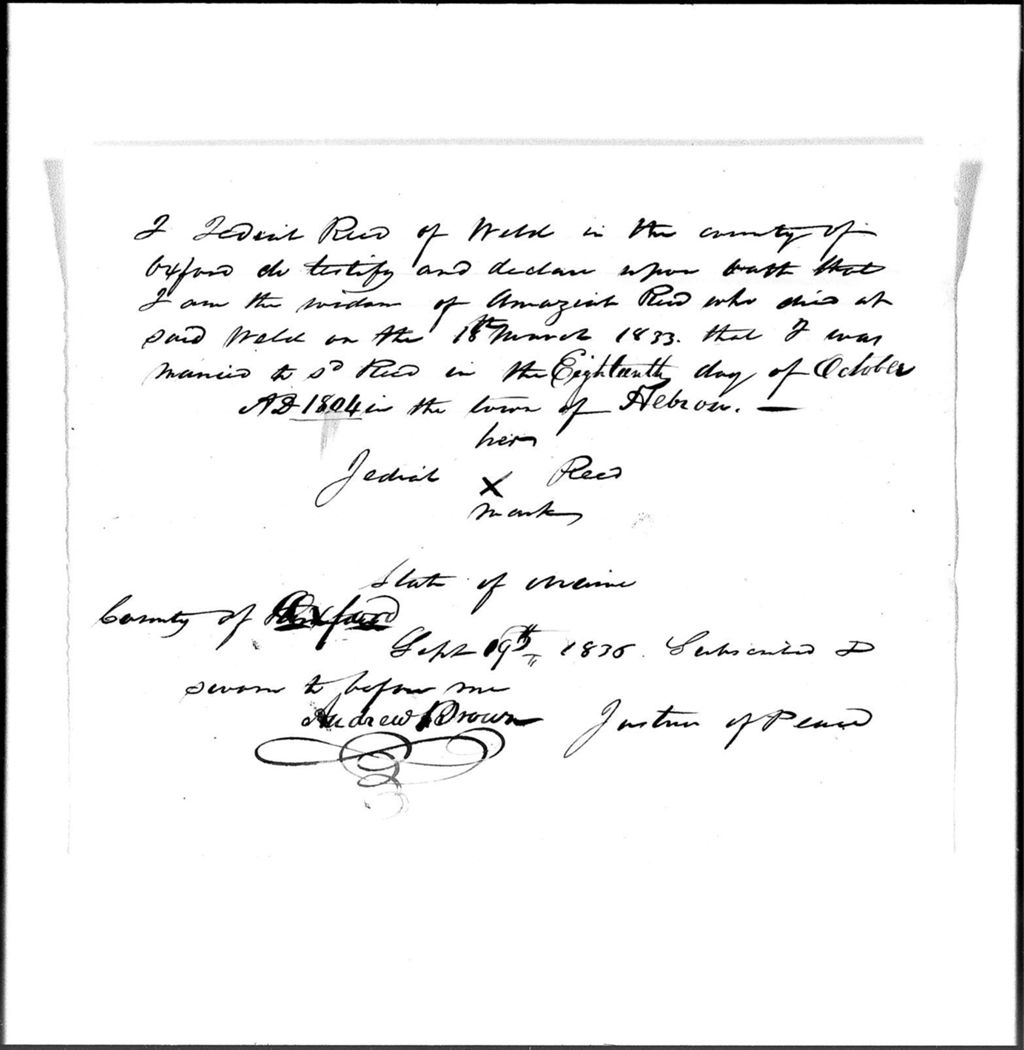 I Jediah Reed of Weld in the county of
Oxford do testify and declare upon oath that
I am the widow of Amaziah Reed who died at
said Weld on the 18th March 1833. that I was
married to sd Reed in the Eighteenth day of October
AD 1804 in the town of Hebron. —
her
Jediah X Reed
mark
State of Maine
County of Oxford
Sept 19th 1836. Subscribed &
sworn to before me
Andrew Brown Justice of Peace